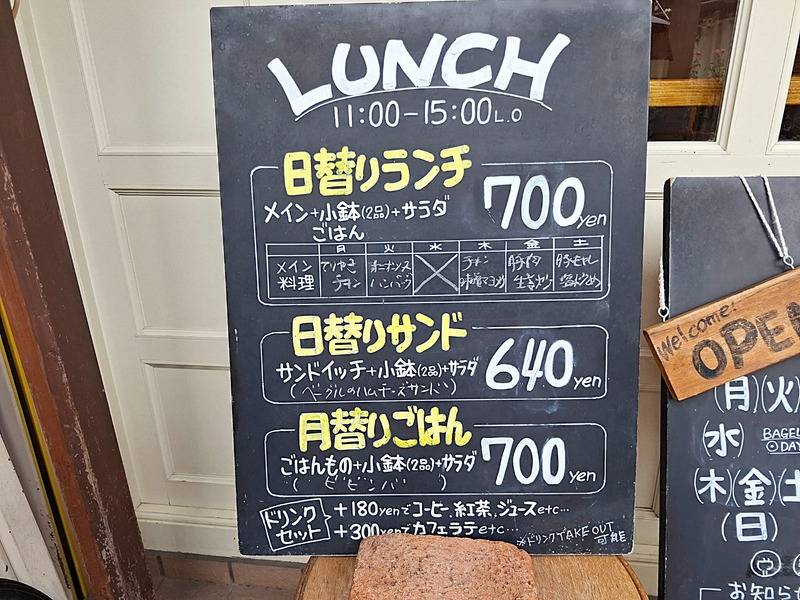 LUNCH
11:00-15:00L.O
日替りランチ
メイン+小鉢(2品)+サラダ
ごはん
700yen
月 火 水 木 金 土
メイン料理 てりやきチキン オーナソースハンバーグ チキン味噌マヨ炒め 豚肉生姜炒め 豚もやし
日替りサンド
サンドイッチ+小鉢(2品)+サラダ
(ベーグルのハムチーズサンド)
640yen
月替りごはん
ごはんもの+小鉢(2品)+サラダ
(ビビンバ)
700yen
ドリンクセット
+180yenでコーヒー,紅茶,ジュースetc…
+300yenでカフェラテetc…
※ドリンクTAKE OUT可能
Welcome!
OPE
(月)(火)
(水) BAGEL DAY
(木)(金)(土
(日)
お知ら